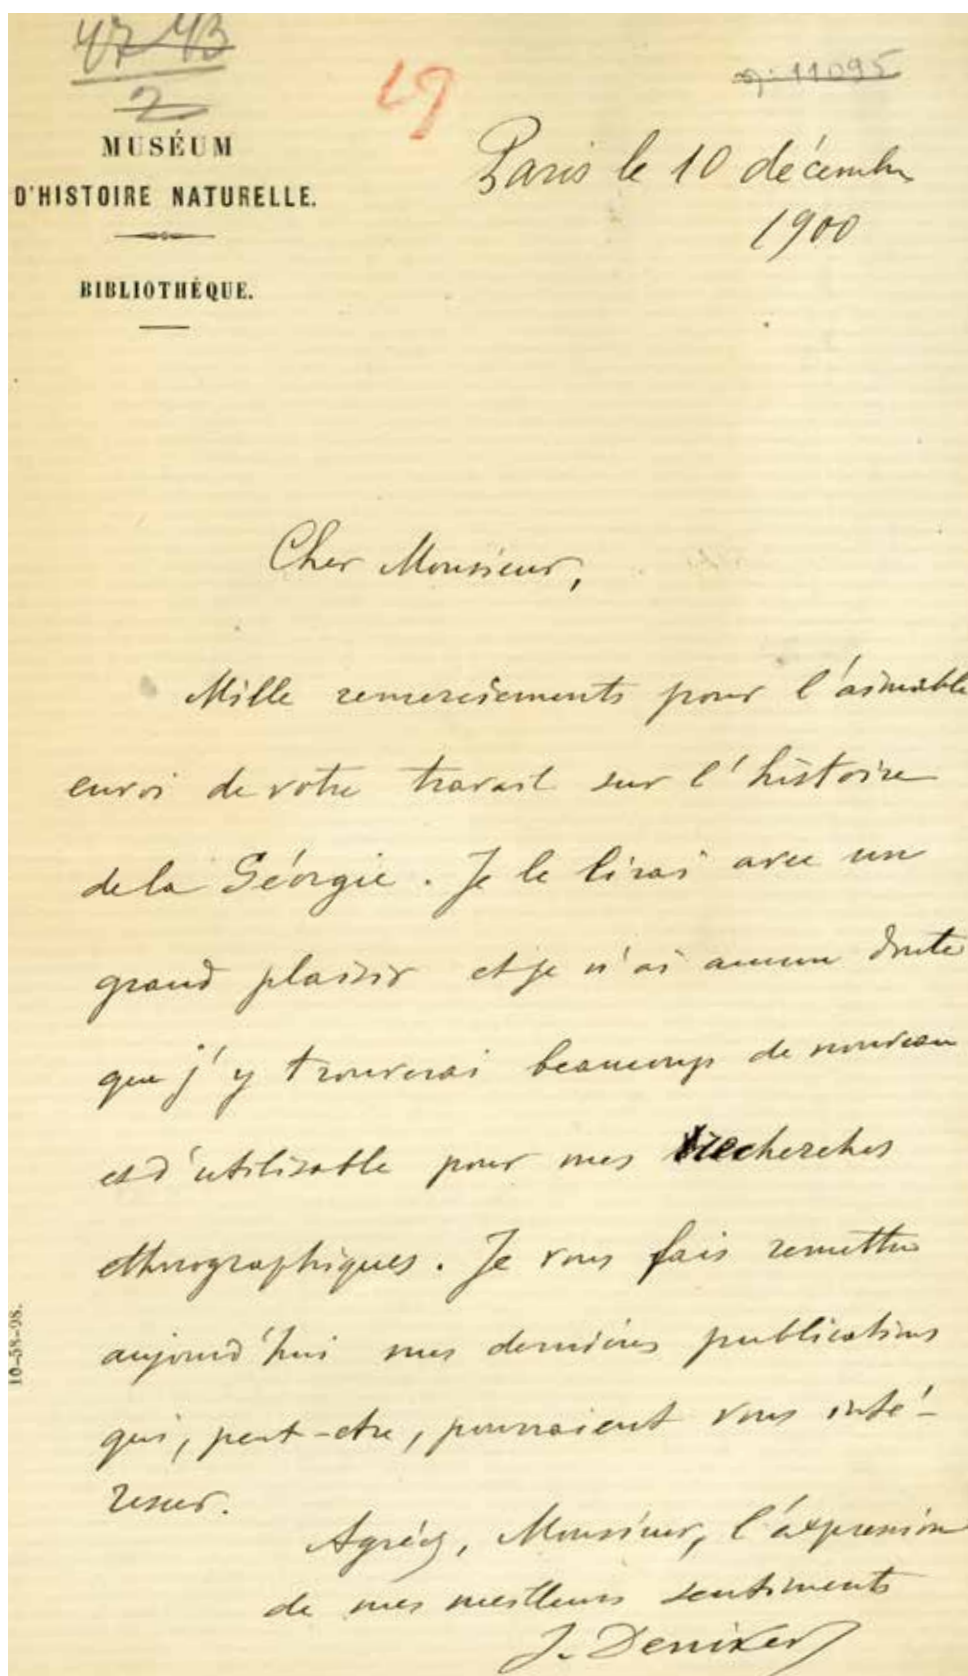 47-43
2
19
n. 11095
MUSÉUM
D'HISTOIRE NATURELLE.
BIBLIOTHÈQUE.
Paris le 10 décembre
1900
Cher Monsieur,
Mille remerciements pour l'aimable
envoi de votre travail sur l'histoire
de la Géorgie. Je le lirai avec un
grand plaisir et je n'ai aucun doute
que j'y trouverai beaucoup de nouveau
et d'utilisable pour mes recherches
ethnographiques. Je vous fais remettre
aujourd'hui mes dernières publications
qui, peut-etre, pourraient vous inté-
resser.
Agréez, Monsieur, l'expression
de mes meilleurs sentiments
J. Deniker
10-58-98.